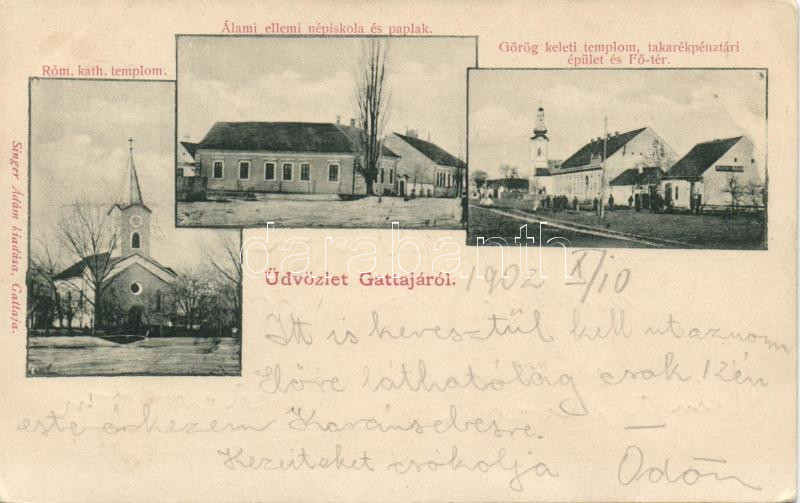 Álami ellemi népiskola és paplak.
Görög keleti templom, takarékpénztári
épület és Fő-tér.
Róm. kath. templom.
Singer Ádám kiadása, Gattaja.
darabanth
Üdvözlet Gattajáról. 1902 X/10
Itt is keresztül kell utaznom
Előre láthatólag csak 12én
este érkezem Karánsebesre.
Kezeiteket csókolja Ödön